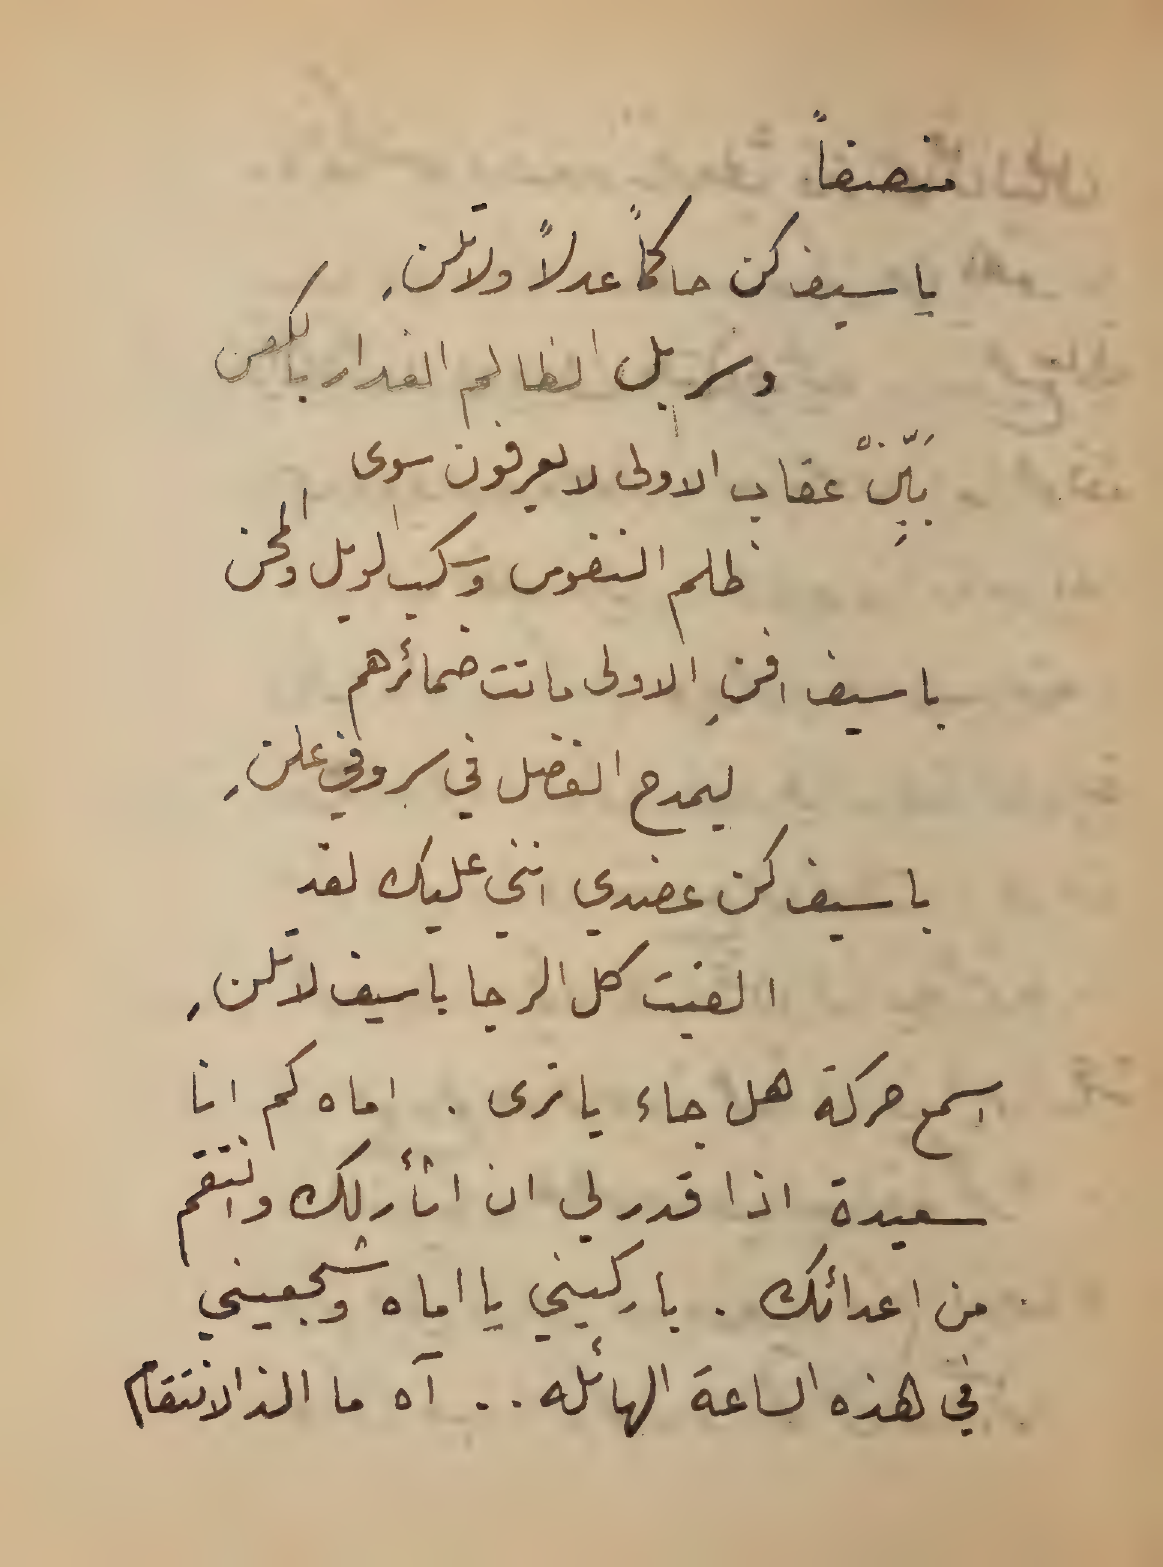 منصفاً
يا سيف كن حاكماً عدلاً ولا تلنِ
وسربل الظالم الغدار بالكفن
بَيِّنْ عقاب الاولى لا يعرفون سوى
ظلم النفوس وسكب الويل والمحن
يا سيف افنِ الاولى ماتت ضمائرهم
ليمدح الفضل في سر وفي علنِ
يا سيف كن عضدي انني عليك لقد
القيت كل الرجا يا سيف لا تلنِ
اسمع حركة هل جاء يا ترى . اماه كم انا
سعيدة اذا قدر لي ان اثأر لك وانتقم
من اعدائك . باركيني يا اماه وشجعيني
في هذه الساعة الهائله .. آه ما الذ الانتقام